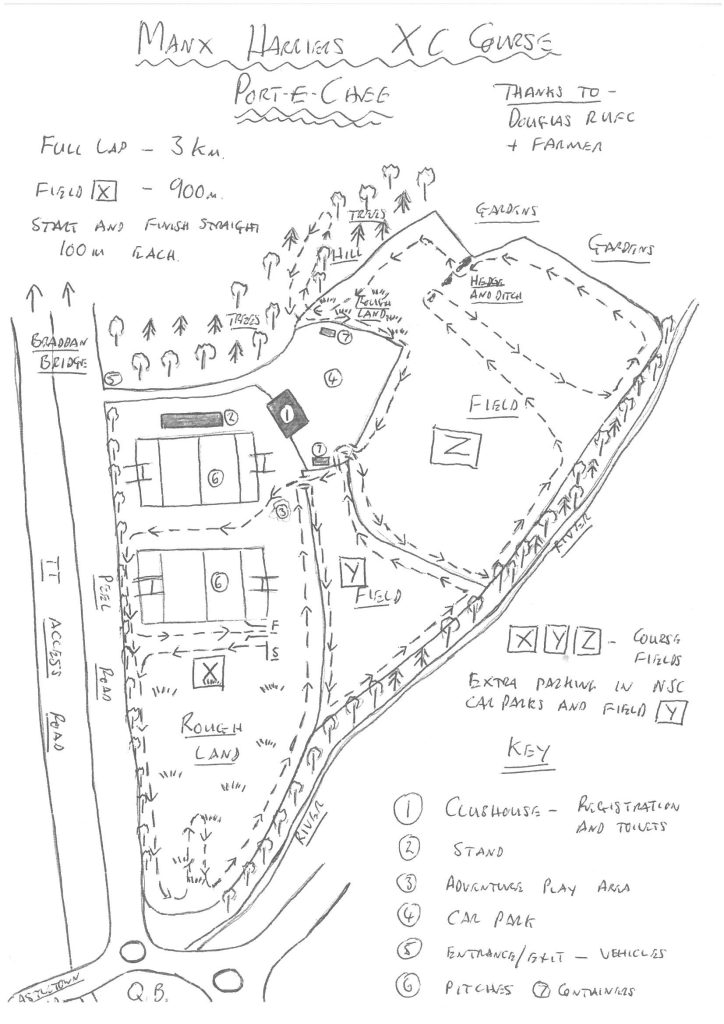 MANX HARRIERS XC COURSE
PORT-E-CHEE
THANKS TO -
DOUGLAS RUFC
+ FARMER
FULL LAP - 3 KM.
FIELD X - 900m.
START AND FINISH STRAIGHT
100m EACH.
TREES
GARDENS
GARDENS
HILL
HEDGE
AND DITCH
ROUGH
LAND
TREES
BRADDAN
BRIDGE
7
5
4
1
2
FIELD
Z
7
6
3
RIVER
6
Y
FIELD
TT ACCESS ROAD
PEEL ROAD
F
S
X
ROUGH
LAND
X Y Z - COURSE
FIELDS
EXTRA PARKING IN NSC
CAR PARKS AND FIELD Y
KEY
RIVER
1 CLUBHOUSE - REGISTRATION
AND TOILETS
2 STAND
3 ADVENTURE PLAY AREA
4 CAR PARK
5 ENTRANCE/EXIT - VEHICLES
6 PITCHES 7 CONTAINERS
CASTLETOWN
Q.B.